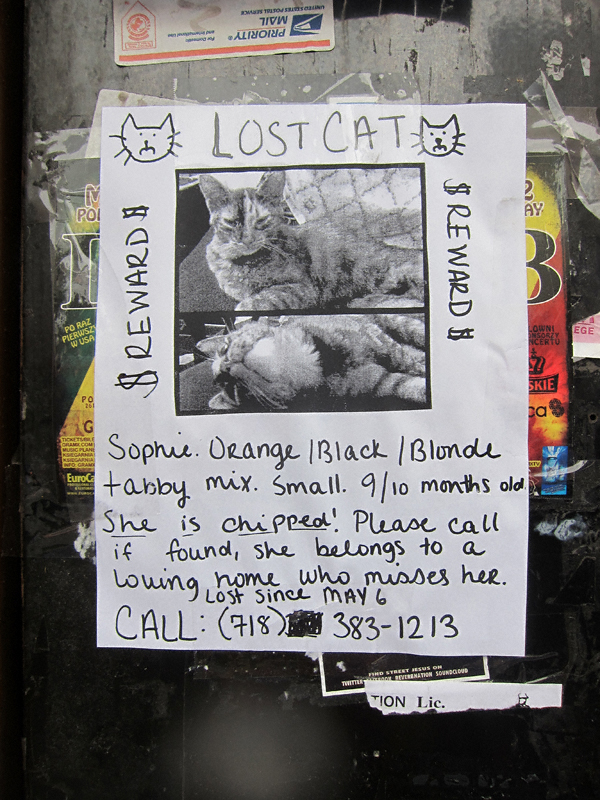 PRIORITY
MAIL
UNITED STATES POSTAL SERVICE
For Domestic
and International Use
LOST CAT
$ REWARD $
$ REWARD $
Sophie. Orange/Black/Blonde
tabby mix. Small. 9/10 months old.
She is chipped! Please call
if found, she belongs to a
loving home who misses her.
Lost since MAY 6
CALL: (718) 383-1213
PO RAZ
PIERWSZY
W USA
EGE
FIND STREET JESUS ON
TWITTER FACEBOOK REVERBNATION SOUNDCLOUD
TION Lic.